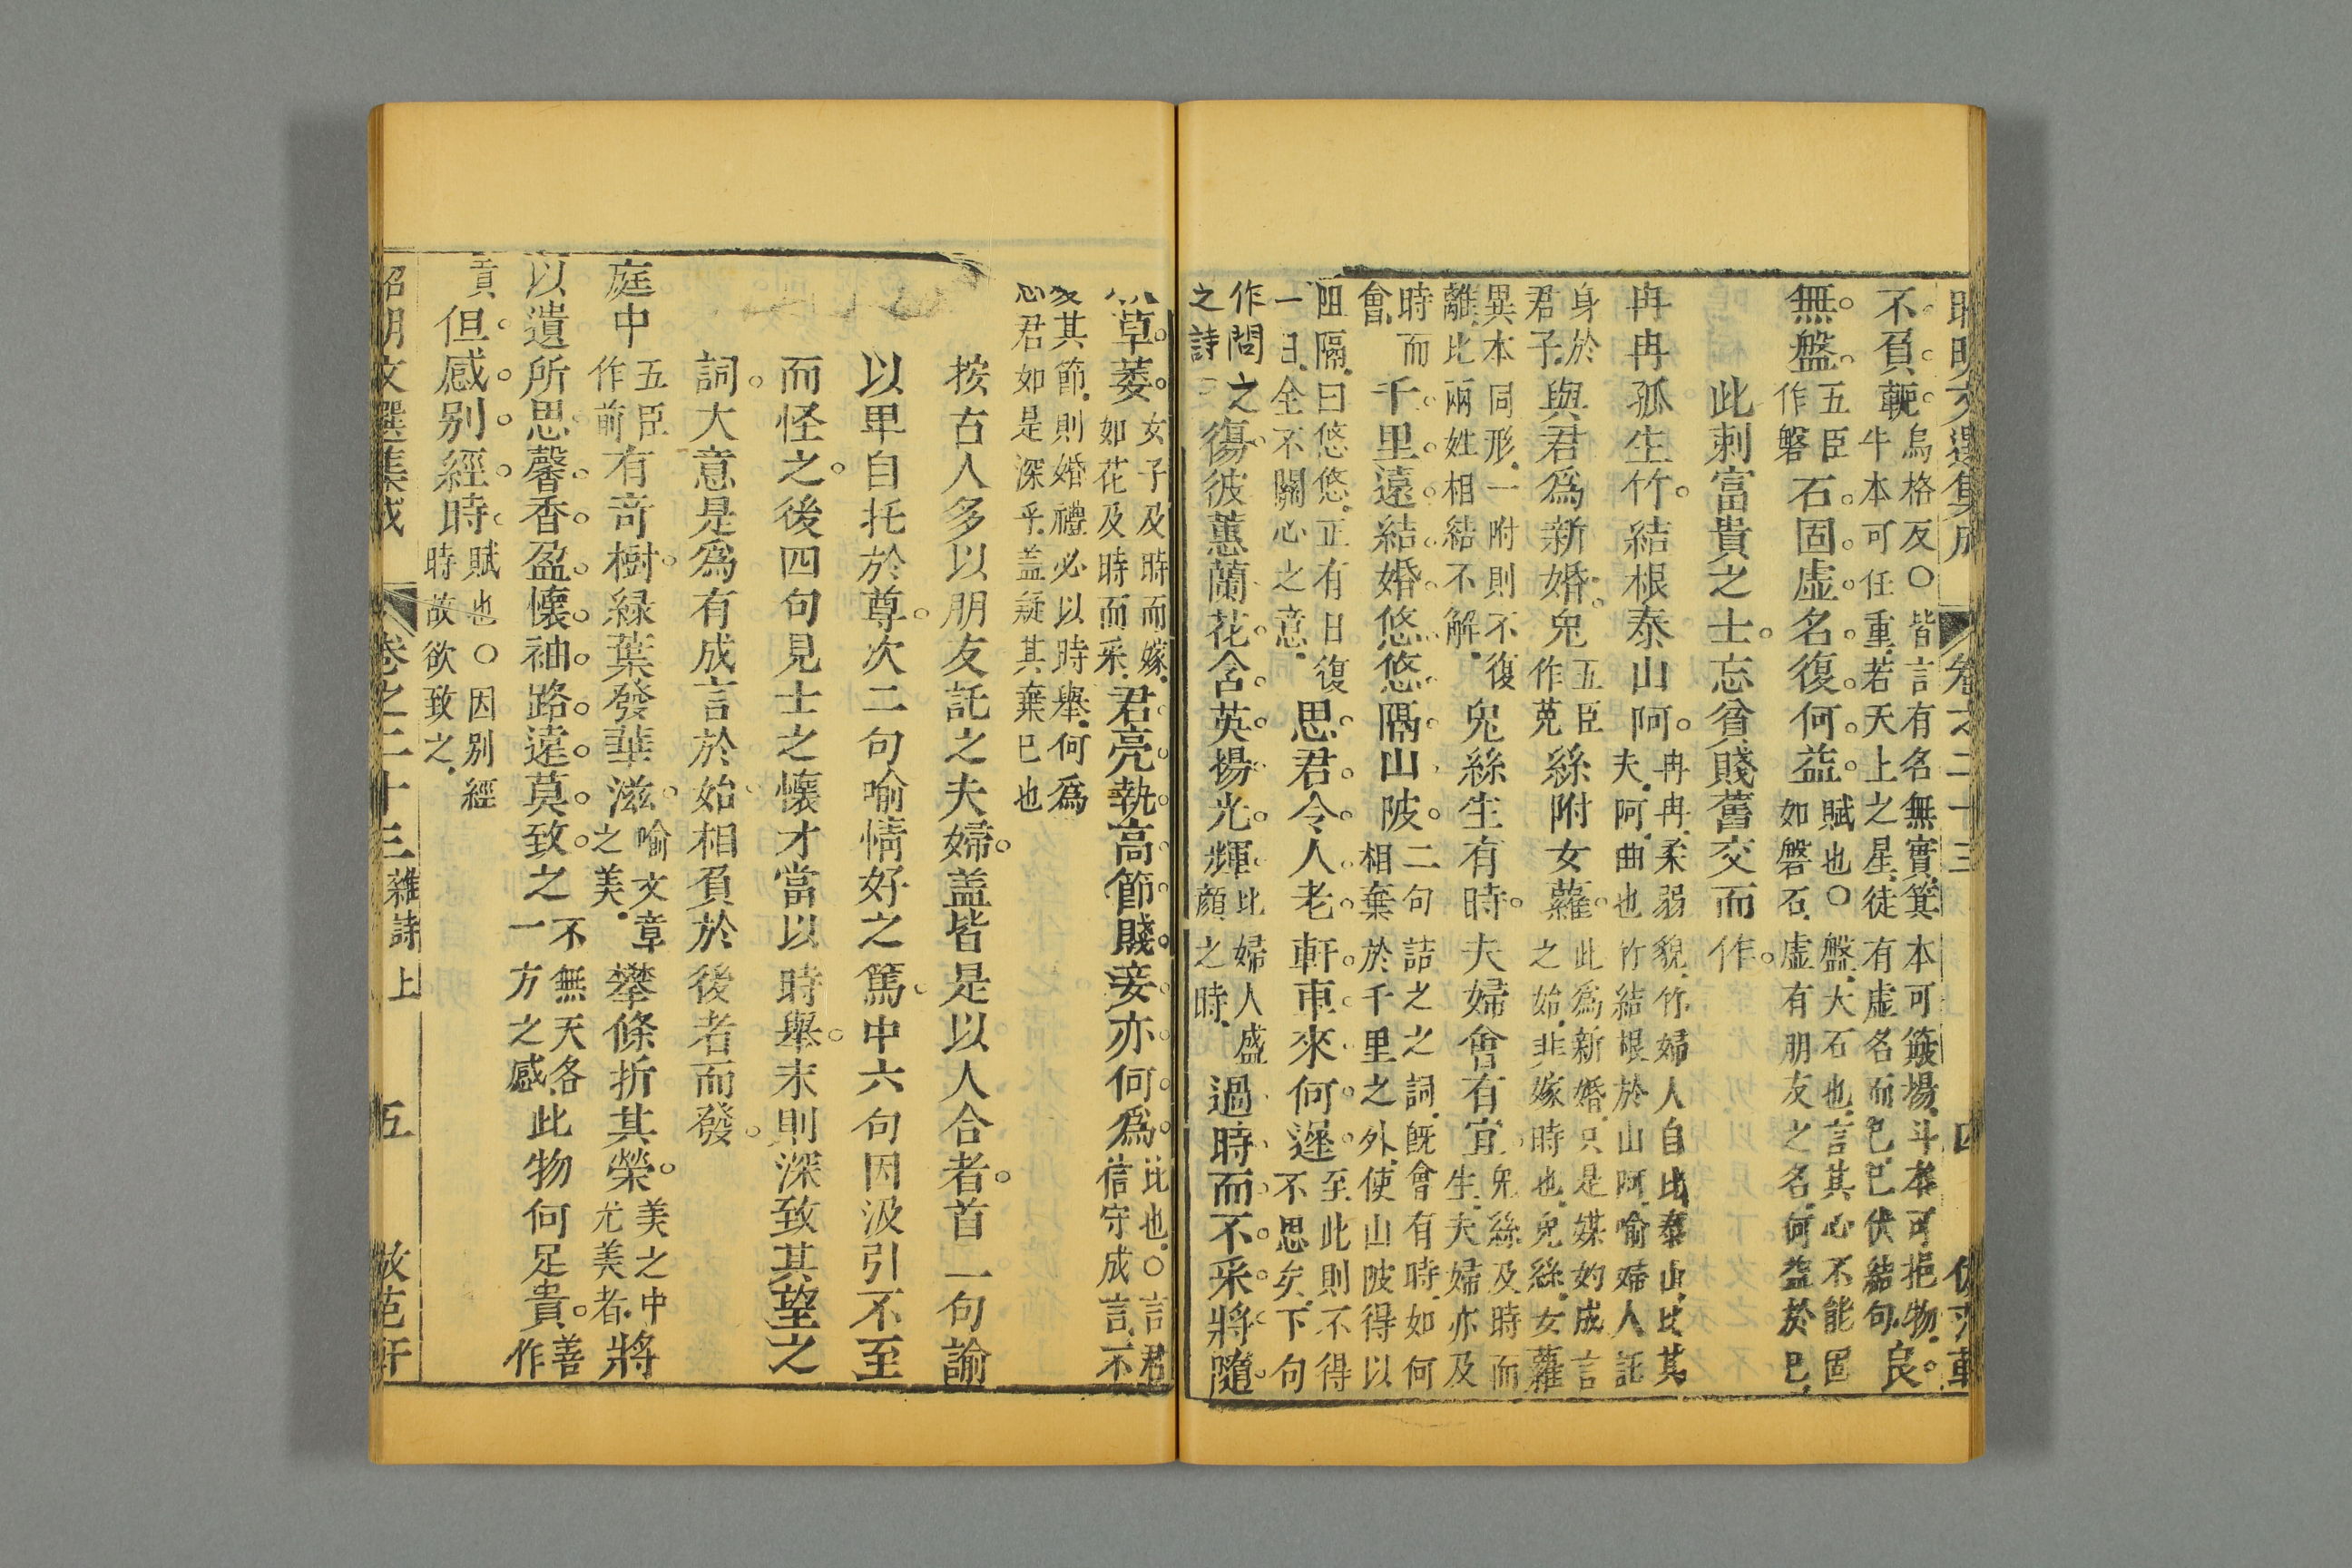 昭明文選集成　卷之二十三　四
不負軛烏格反○皆言有名無實箕本可簸揚斗本可挹物
牛本可任重若天上之星徒有虛名而已已伏結句良
無盤五臣作磐石固虛名復何益賦也○盤大石也言其心不能固
如磐石虛有朋友之名何益於已
此刺富貴之士忘貧賤舊交而作
冉冉孤生竹結根泰山阿冉冉柔弱貌竹婦人自比泰山比其
夫阿曲也竹結根於山阿喻婦人託
身於君子與君爲新婚兔五臣作菟絲附女蘿此爲新婚只是媒妁成言
之始非嫁時也兔絲女蘿
異本同形一附則不復離比兩姓相結不解兔絲生有時夫婦會有宜兔絲及時而
生夫婦亦及
時而會千里遠結婚悠悠隔山陂二句詰之之詞旣會有時如何
相棄於千里之外使山陂得以
阻隔曰悠悠正有日復一日全不關心之意思君令人老軒車來何遲至此則不得
不思矣下句
作問之之詩傷彼蕙蘭花含英揚光輝比婦人盛
顏之時過時而不采將隨
草萎女子及時而嫁如花及時而采君亮執高節賤妾亦何爲比也○言君
信守成言不
其節則婚禮必以時舉何爲
君如是深乎盖疑其棄已也
按古人多以朋友託之夫婦盖皆是以人合者首二句諭
以卑自托於尊次二句喻情好之篤中六句因汲引不至
而怪之後四句見士之懷才當以時舉末則深致其望之
詞大意是爲有成言於始相負於後者而發
庭中五臣作前有奇樹緑葉發華滋喻文章之美攀條折其榮美之中尤美者將
以遺所思馨香盈懷袖路遠莫致之不無天各一方之感此物何足貴善作
貢但感别經時賦也○因别經
時故欲致之
昭明文選集成　卷之二十三雜詩上　五　倣范軒